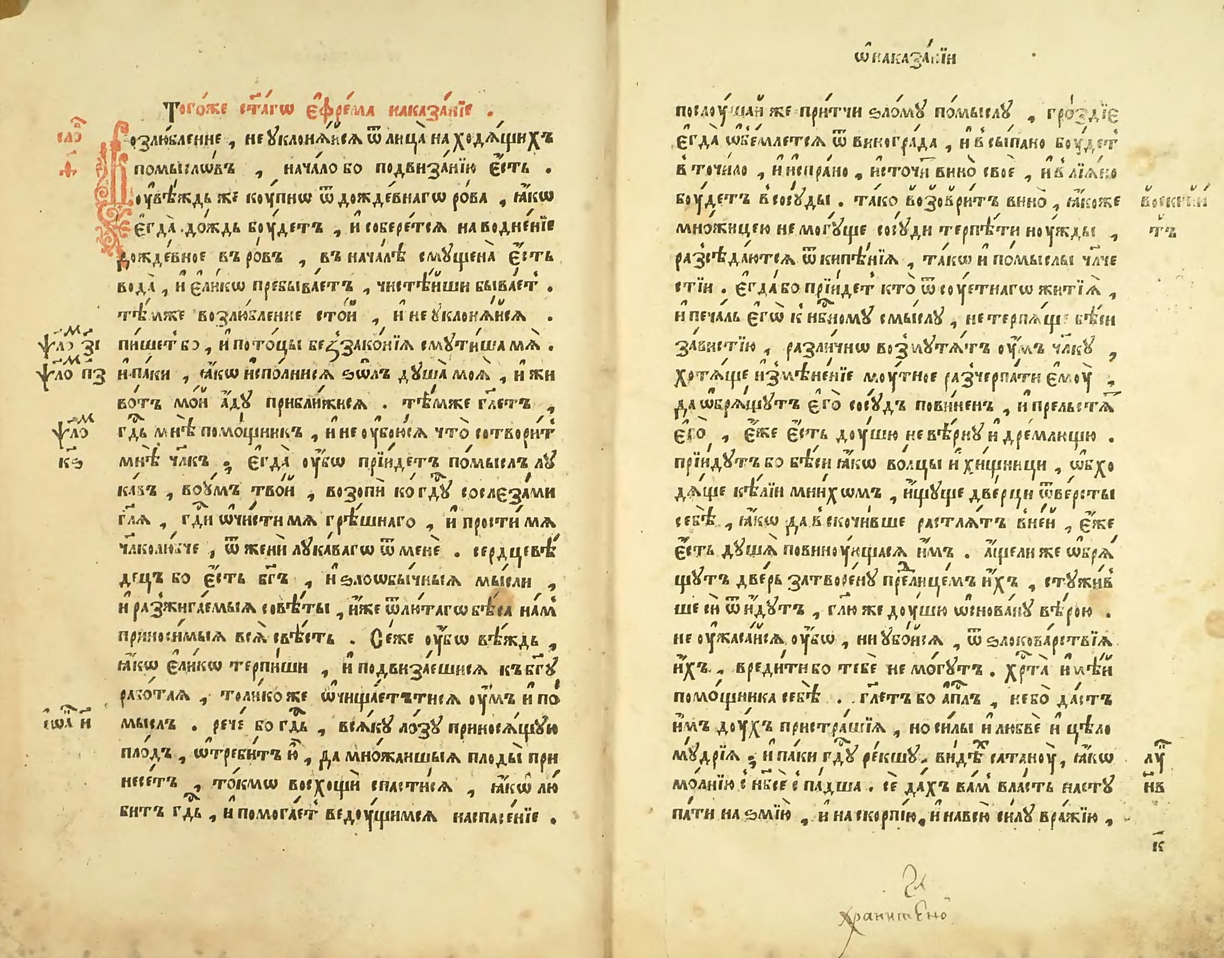 Тогоже ст҃агѡ е҆фре́ма наказа́нїе .
сло҃
Возлю́бленне , не уклонѧ́йсѧ ѿ лица̀ находѧ́щихъ
помысло́въ , нача́ло бо подвиза́нїю є҆́сть .
оу҆вѣ́ждь же коу́пнѡ ѿ дожде́внагѡ ро́ва , ꙗ҆́кѡ
є҆гда̀ до́ждь бꙋ́детъ , и҆ собере́тсѧ наводне́нїе
дожде́вное въ ро́въ , въ нача́лѣ смꙋще́на є҆́сть
вода̀ , и҆ є҆ли́кѡ пребыва́етъ , чистѣ́йши быва́ет .
тѣ́мже возлю́бленне сто́й , и҆ не уклонѧ́йсѧ .
ѱало́м з҃і
пи́шет бо , и҆ пото́цы беззако́нїѧ смꙋти́ша мѧ̀ .
ѱало́м п҃з
и҆ па́ки , ꙗ҆́кѡ и҆спо́лнисѧ ѕѡ́лъ дꙋша̀ моѧ̀ , и҆ жи
во́тъ мо́й а҆́дꙋ прибли́жисѧ . тѣ́мже гл҃етъ ,
ѱало́м
гд҇ь мнѣ̀ помо́щникъ , и҆ не оу҆бою́сѧ что̀ сотвори́т
мнѣ̀ чл҃къ ; є҆гда̀ оу҆́бѡ прїи́детъ по́мыслъ лꙋ
ка́въ , во оу҆́мъ тво́й , возопі́й ко гд҇ꙋ со слеза́ми
гл҃ѧ , гд҇и ѡ҆чи́сти мѧ̀ грѣ́шнаго , и҆ прости́ мѧ
чл҃колю́бче , ѿженѝ лꙋка́вагѡ ѿ менѐ . сердцевѣ́
децъ бо є҆́сть бг҃ъ , и҆ ѕлоѡбы́чныѧ мы́сли ,
и҆ разжига́емыѧ совѣ́ты , и҆́же ѿ лю́тагѡ бѣ́са на́м
приноси́мыѧ всѧ̀ свѣ́сть . Се́же оу҆́бѡ вѣ́ждь ,
ꙗ҆́кѡ є҆ли́кѡ терпи́ши , и҆ подвиза́ешисѧ къ бг҃ꙋ
рабо́таѧ , толи́ко же ѡ҆чища́етъ ти сѧ оу҆́мъ и҆ по́
і҆ѡа҃н
мыслъ . рече́ бо гд҇ь , всѧ́кꙋ ло́зꙋ приносѧ́щꙋю
пло́дъ , ѡ҆треби́тъ ю҆̀ , да мно́жаишыѧ плоды̀ при
несе́тъ , то́кмѡ восхощѝ спасти́сѧ , ꙗ҆́кѡ лю́
битъ гд҇ь , и҆ помога́ет ведꙋ́щимсѧ на спасе́нїе .
ѡ҆ наказа́нїи
послꙋ́шай же при́тчи ѕло́мꙋ по́мыслꙋ , гро́здїе
є҆гда̀ ѡ҆бе́млетсѧ ѿ виногра́да , и҆ всы́пано бꙋ́дет
в точи́ло , и҆ испра́но , и҆сточи́ вино̀ своѐ , и҆ влїѧ́но
бꙋ́детъ в сосꙋ́ды . та́ко возоврит вино̀ , ꙗ҆́коже
мно́жицею не могꙋ́ще сосꙋ́ди терпѣ́ти нꙋ́жды ,
разсѣда́ютсѧ ѿ кипѣ́нїѧ , та́кѡ и҆ по́мыслы чл҃че
стїи . є҆гда́ бо прїи́дет кто̀ ѿ сꙋ́етнагѡ житїѧ̀ ,
и҆ печа́ль є҆гѡ̀ к нб҇номꙋ смы́слꙋ , не терпѧ́ще бѣ́си
за́вистїю , разли́чнѡ возмꙋтѧ́тъ оу҆́мъ чл҃кꙋ ,
хотѧ́ще и҆змѣне́нїе мꙋ́тное разчерпа́ти є҆мꙋ̀ ,
да ѡ҆брѧ́щꙋтъ є҆го̀ сосꙋ́дъ пови́ненъ , и҆ прельстѧ́т
є҆го̀ , є҆́же є҆́сть дꙋ́шю невѣ́рнꙋ и҆ дре́млющю .
прїи́дꙋтъ бо бѣ́си ꙗ҆́кѡ во́лцы и҆ хи́щници , ѡ҆бхо
дѧ́ще кѣ́лїи мни́хѡмъ , и҆́щꙋще две́рци ѿве́рсты
себѣ̀ , ꙗ҆́кѡ да вскочи́вше растлѧ́тъ в не́й , є҆́же
є҆́сть дꙋша̀ повинꙋ́ющаѧсѧ и҆́мъ . а҆́ще ли же ѡ҆брѧ́
щꙋтъ две́рь затворе́нꙋ пред лице́мъ и҆́хъ , стꙋжи́в
ше си̑ ѿи́дꙋтъ , гл҃ю же дꙋ́шю ѡ҆снова́нꙋ вѣ́рою .
не оу҆жаса́йсѧ оу҆́бѡ , ни убо́йсѧ , ѿ ѕлокова́рствїѧ
и҆́хъ , вреди́ти бо тебѐ не мо́гꙋтъ . хр҇та̀ и҆мѣ́й
помо́щника себѣ̀ . гл҃етъ бо а҆п҇лъ , не бо̀ да́стъ
и҆́мъ дꙋ́хъ пристра́шїѧ , но си́лы и҆ любвѐ и҆ цѣло
мꙋ́дрїѧ ; и҆ па́ки гд҇ꙋ ре́кшꙋ . ви́дѣх сатанꙋ̀ , ꙗ҆́кѡ
лꙋ҃
мо́лнїю с нб҇сѐ спа́дша . сѐ да́хъ ва́м вла́сть настꙋ
н҃в
па́ти на ѕмїю̀ , и҆ на скорпі́ю , и҆ на всю̀ си́лꙋ вра́жїю ,
к҃